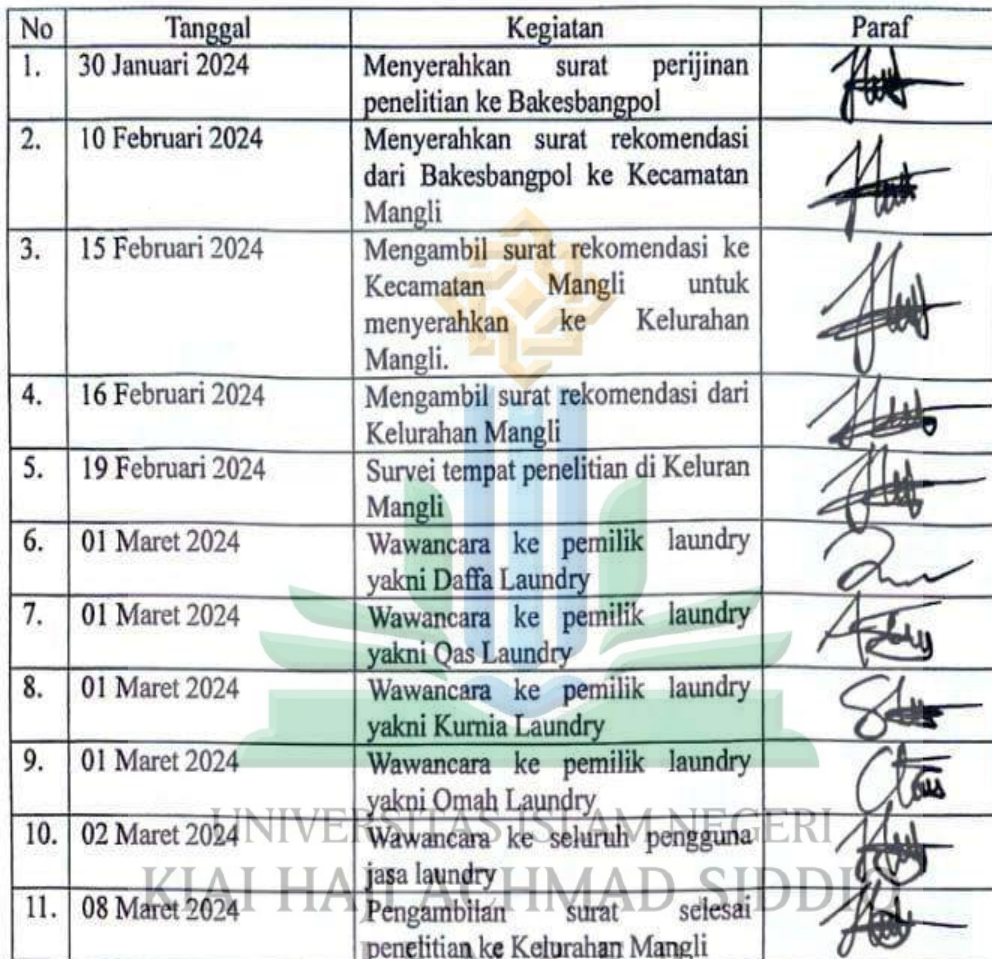 No Tanggal Kegiatan Paraf
1. 30 Januari 2024 Menyerahkan surat perijinan
penelitian ke Bakesbangpol
2. 10 Februari 2024 Menyerahkan surat rekomendasi
dari Bakesbangpol ke Kecamatan
Mangli
3. 15 Februari 2024 Mengambil surat rekomendasi ke
Kecamatan Mangli untuk
menyerahkan ke Kelurahan
Mangli.
4. 16 Februari 2024 Mengambil surat rekomendasi dari
Kelurahan Mangli
5. 19 Februari 2024 Survei tempat penelitian di Keluran
Mangli
6. 01 Maret 2024 Wawancara ke pemilik laundry
yakni Daffa Laundry
7. 01 Maret 2024 Wawancara ke pemilik laundry
yakni Qas Laundry
8. 01 Maret 2024 Wawancara ke pemilik laundry
yakni Kurnia Laundry
9. 01 Maret 2024 Wawancara ke pemilik laundry
yakni Omah Laundry
UNIVERSITAS ISLAM NEGERI
10. 02 Maret 2024 Wawancara ke seluruh pengguna
jasa laundry
KIAI HAJI ACHMAD SIDDIQ
11. 08 Maret 2024 Pengambilan surat selesai
penelitian ke Kelurahan Mangli